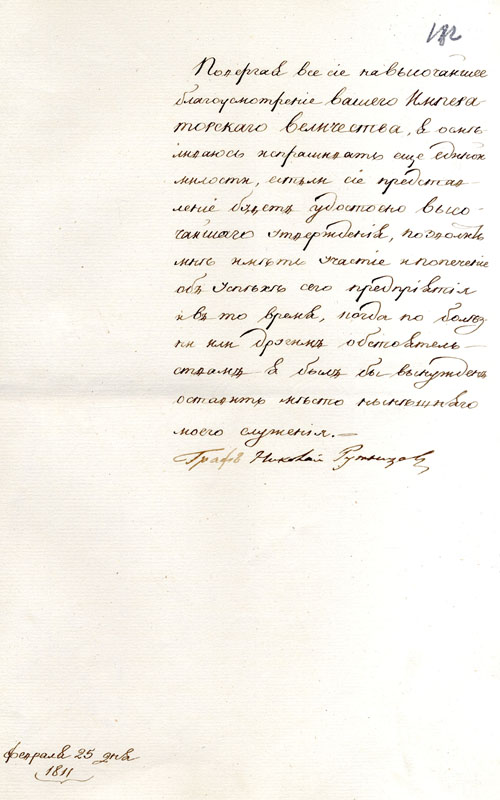 182
Повергая все сіе на высочайшее
благоусмотреніе вашего Импера
торскаго величества, я осмѣ-
ливаюсь испрашивать еще единой
милости, естьли сіе представ-
леніе будетъ удостоено высо-
чайшаго утвержденія, позволить
мнѣ имѣть участіе и попеченіе
объ успѣхѣ сего предпріятія
и въ то время, когда по болѣз
ни или другимъ обстоятель-
ствамъ я былъ бы вынужденъ
оставить мѣсто нынѣшняго
моего служенія.—
Графъ Николай Румянцовъ
февраля 25 дня
1811